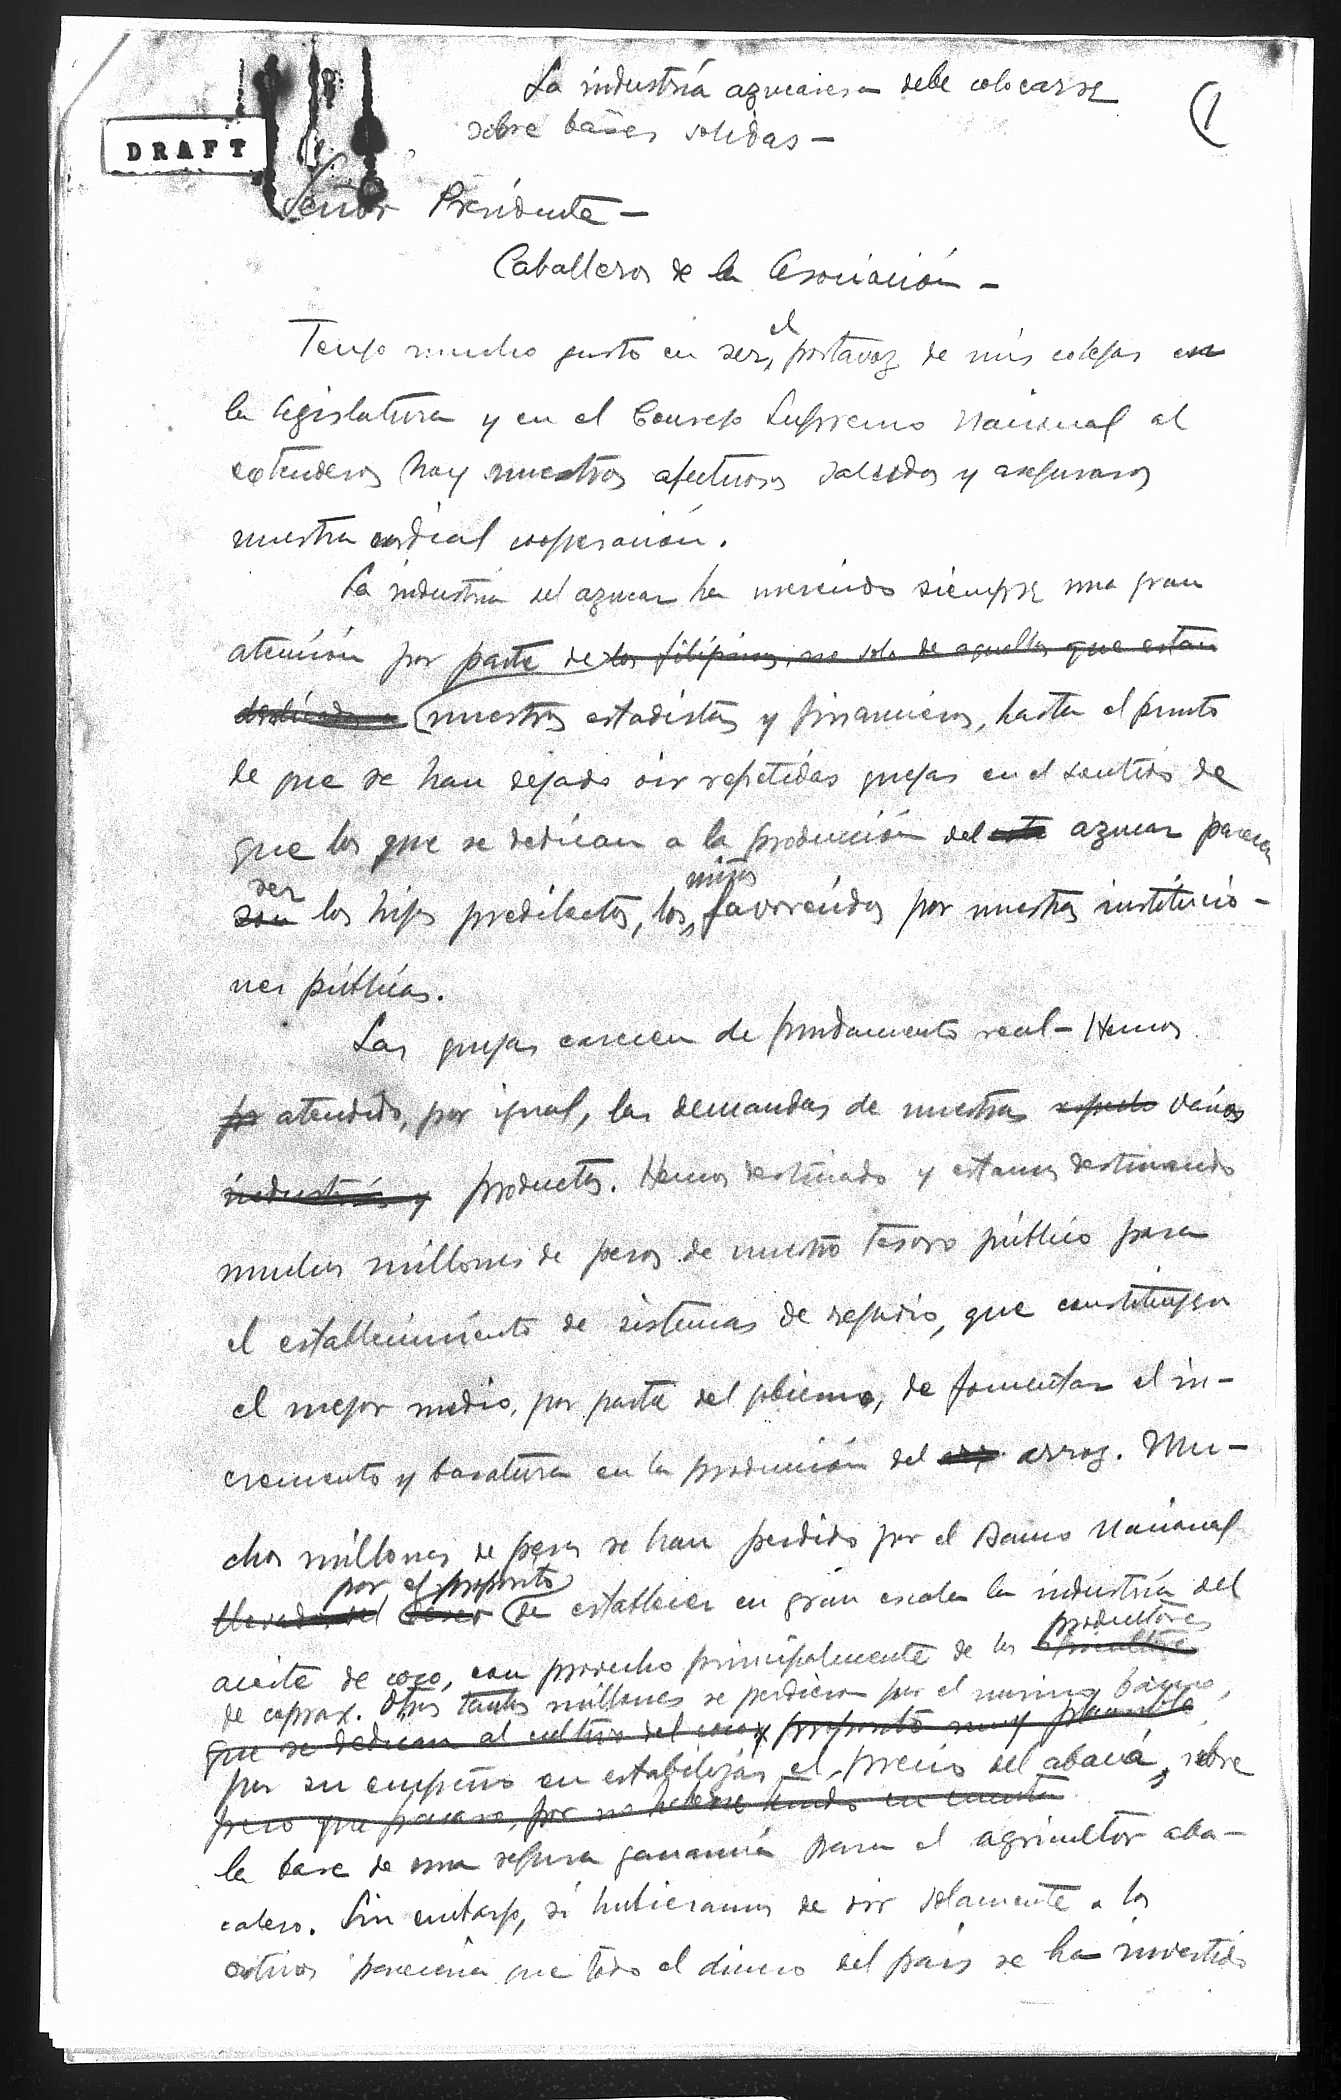 La industria azucarera debe colocarse
sobre bases solidas —
(1
DRAFT
Señor Presidente —
Caballeros de la Asociación —
Tengo mucho gusto en ser el portavoz de mis colegas en
la legislatura y en el Consejo Supremo Nacional al
extenderos hoy nuestros afectuosos saludos y aseguraros
nuestra cordial cooperación.
La industria del azucar ha merecido siempre una gran
atención por parte de los filipinos, no solo de aquellos que estan
dedicados a nuestros estadistas y financieros, hasta el punto
de que se han dejado oir repetidas quejas en el sentido de
que los que se dedican a la producción del este azucar parecen
ser
son los hijos predilectos, los mas favorecidos por nuestras institucio-
nes públicas.
Las quejas carecen de fundamento real — Hemos
po atendido, por igual, las demandas de nuestros varios
industrias y productos. Hemos destinado y estamos destinando
muchos millones de pesos de nuestro tesoro público para
el establecimiento de sistemas de regadío, que constituyen
el mejor medio, por parte del gobierno, de fomentar el in-
cremento y baratura en la producción del arroz. Mu-
chos millones de pesos se han perdido por el Banco Nacional
por el proposito
llevado del deseo de establecer en gran escala la industria del
productores
aceite de coco, con provecho principalmente de los
de coprax. Otros tantos millones se perdieron por el mismo banco,
que se dedican al cultivo del coco proposito muy plausible
por su empeño en estabilizar el precio del abacá, sobre
pero que fracaso, por no haberse tenido en cuenta
la base de una segura ganancia para el agricultor aba-
calero. Sin embargo, si hubieramos de oir solamente a los
criticos pareceria que todo el dinero del pais se ha invertido